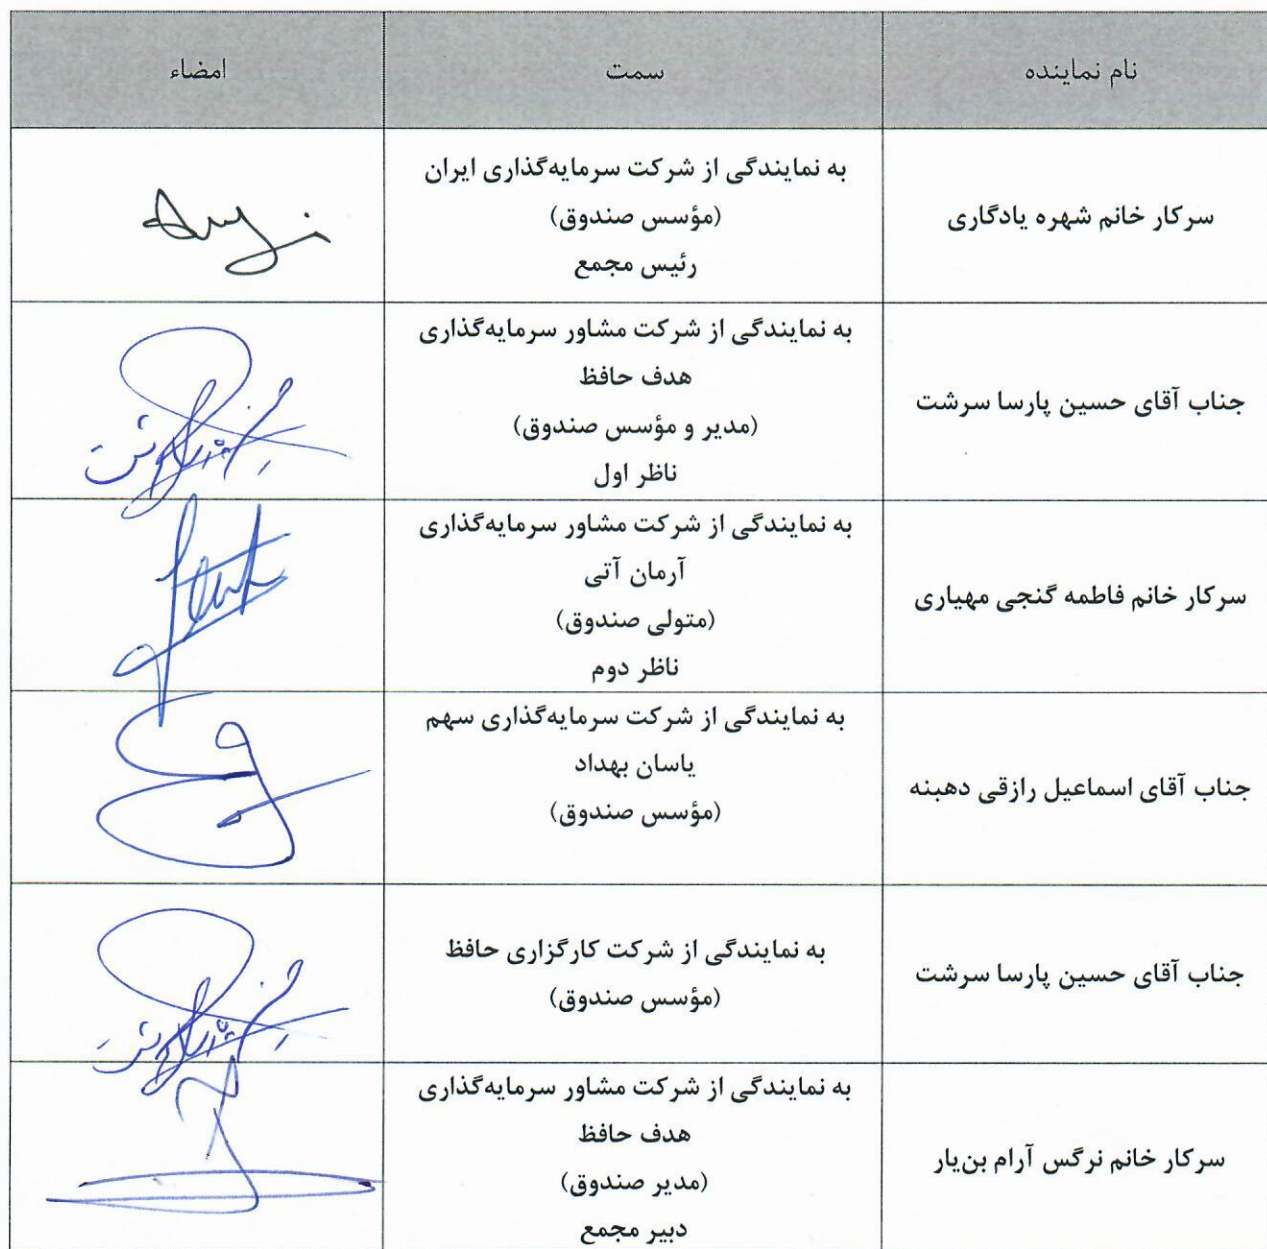 نام نماینده
سمت
امضاء
سرکار خانم شهره یادگاری
به نمایندگی از شرکت سرمایه‌گذاری ایران
(مؤسس صندوق)
رئیس مجمع
جناب آقای حسین پارسا سرشت
به نمایندگی از شرکت مشاور سرمایه‌گذاری
هدف حافظ
(مدیر و مؤسس صندوق)
ناظر اول
سرکار خانم فاطمه گنجی مهیاری
به نمایندگی از شرکت مشاور سرمایه‌گذاری
آرمان آتی
(متولی صندوق)
ناظر دوم
جناب آقای اسماعیل رازقی دهبنه
به نمایندگی از شرکت سرمایه‌گذاری سهم
یاسان بهداد
(مؤسس صندوق)
جناب آقای حسین پارسا سرشت
به نمایندگی از شرکت کارگزاری حافظ
(مؤسس صندوق)
سرکار خانم نرگس آرام بن‌یار
به نمایندگی از شرکت مشاور سرمایه‌گذاری
هدف حافظ
(مدیر صندوق)
دبیر مجمع